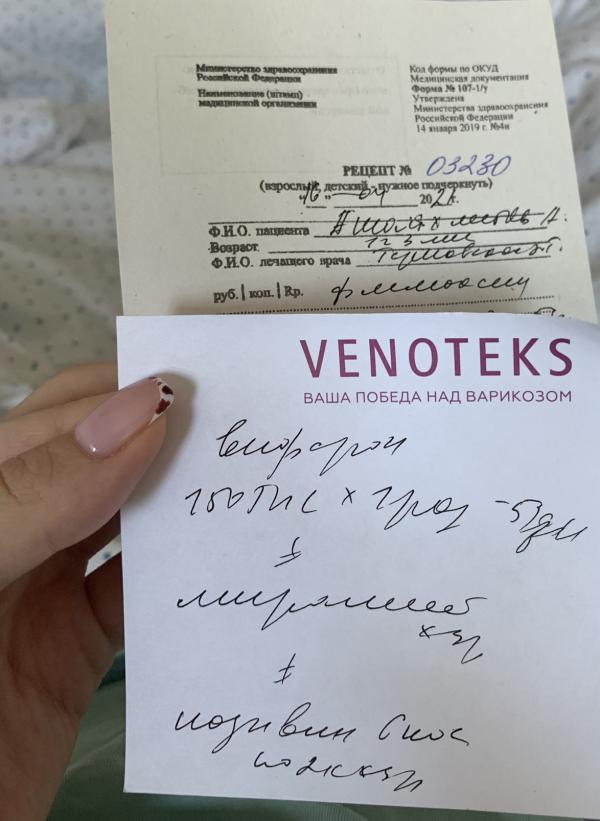 Министерство здравоохранения
Российской Федерации
Наименование (штамп)
медицинской организации
Код формы по ОКУД
Медицинская документация
Форма № 107-1/у
Утверждена
Министерства здравоохранения
Российской Федерации
14 января 2019 г. №4н
РЕЦЕПТ № 03230
(взрослый, детский - нужное подчеркнуть)
"16" 04 2021.
Ф.И.О. пациента
Возраст
Ф.И.О. лечащего врача
руб. | коп. | Rp.
VENOTEKS
ВАША ПОБЕДА НАД ВАРИКОЗОМ
виферон
150 х 2 р 5 дн
мирамист
х 3 р
називин в нос
по 2к х 3 р